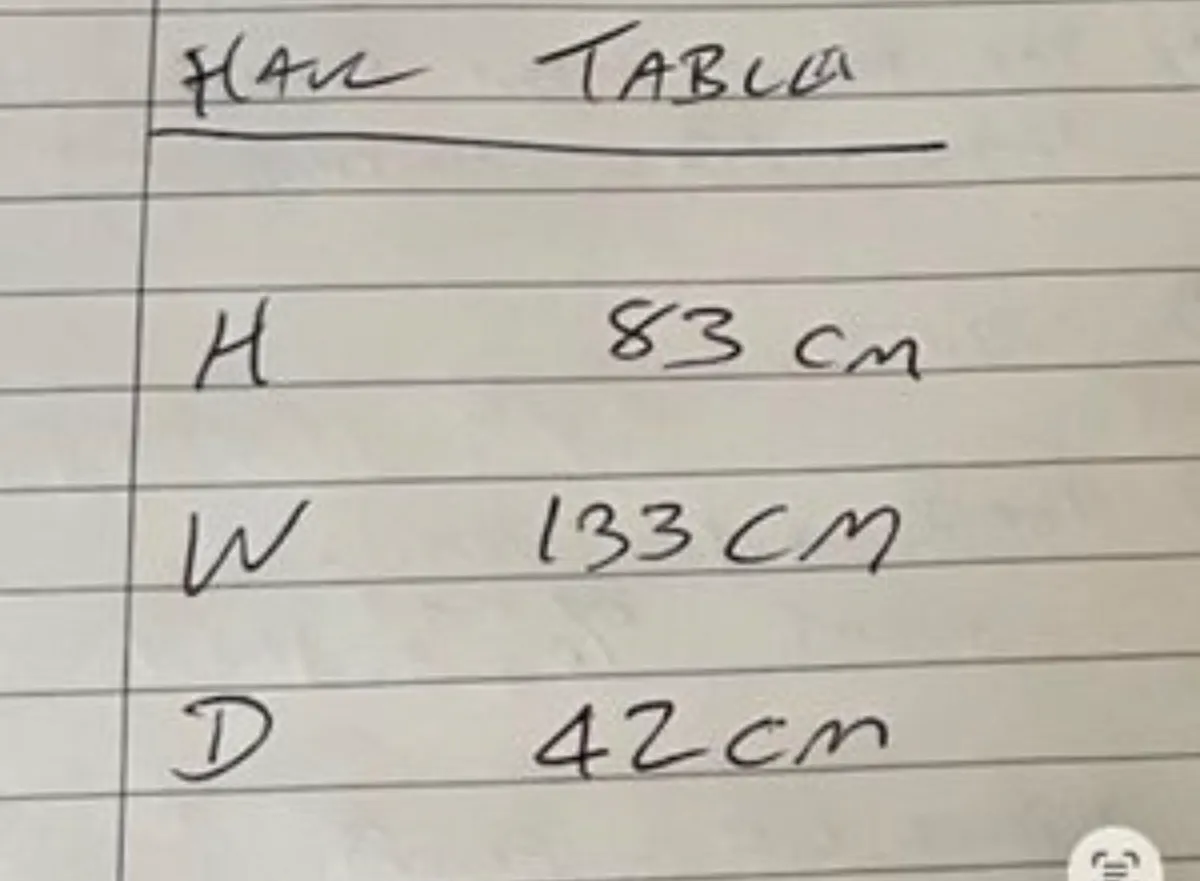 HALL TABLE
H 83 cm
W 133 cm
D 42 cm